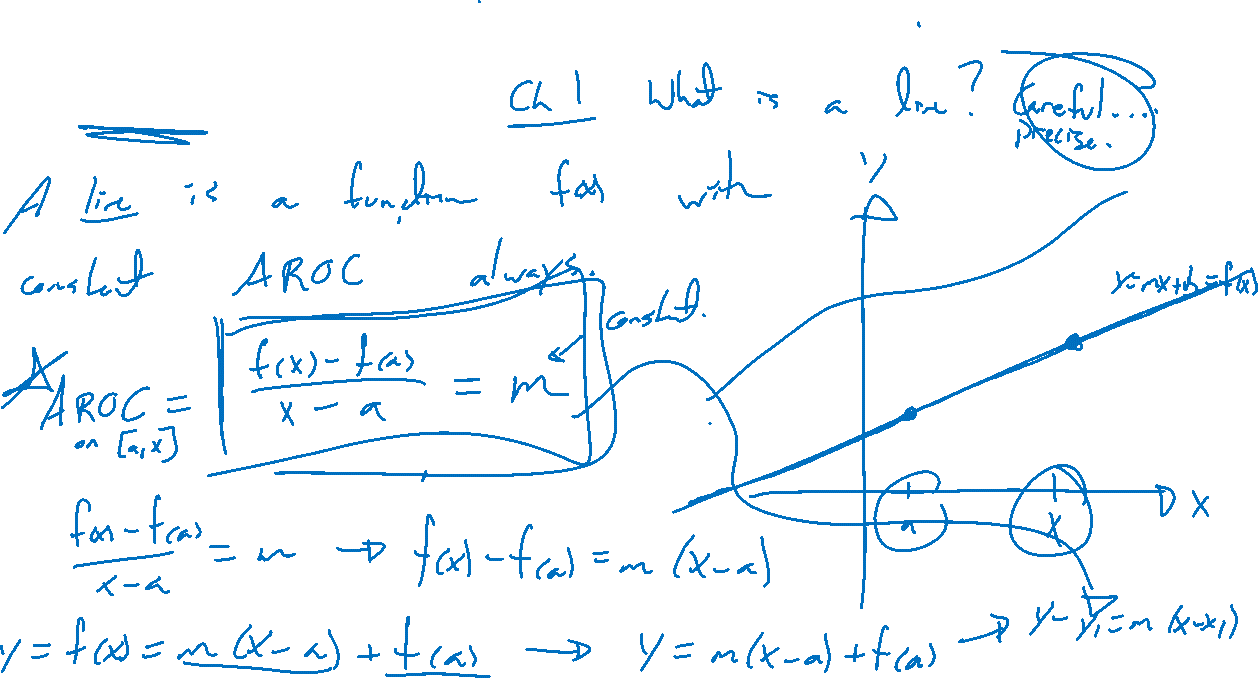 Ch 1 What is a line? Careful....
precise.
A line is a function f(x) with
constant AROC always.
constant.
AROC = f(x) - f(a) / x - a = m
on [a, x]
f(x) - f(a) / x - a = m → f(x) - f(a) = m (x - a)
y = f(x) = m (x - a) + f(a) → y = m(x - a) + f(a) → y - y₁ = m (x - x₁)
y
y = mx + b = f(x)
a
x
x